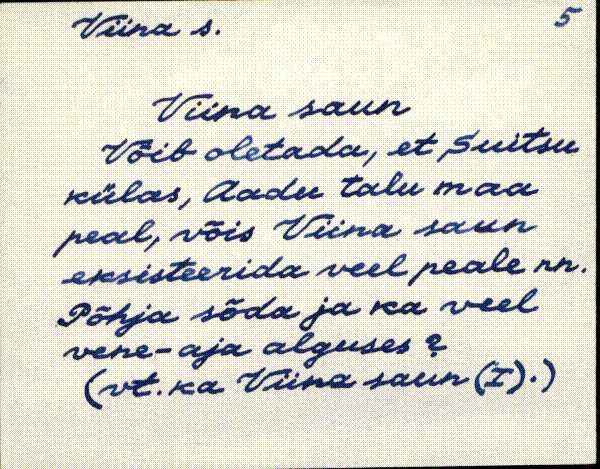 Viina s.
5
Viina saun
Võib oletada, et Suitsu
külas, Aadu talu maa
peal, võis Viina saun
eksisteerida veel peale nn.
Põhja sõda ja ka veel
vene-aja alguses?
(vt. ka Viina saun (I).)